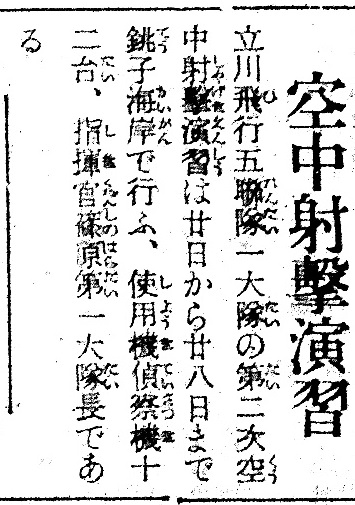 空中射擊演習
立川飛行五聯隊一大隊の第二次空
中射擊演習は廿日から廿八日まで
銚子海岸で行ふ、使用機偵察機十
二台、指揮官篠原第一大隊長であ
る